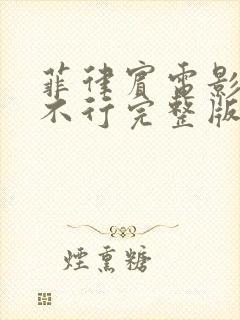 菲律宾电影
不行完整版
煙熏糖